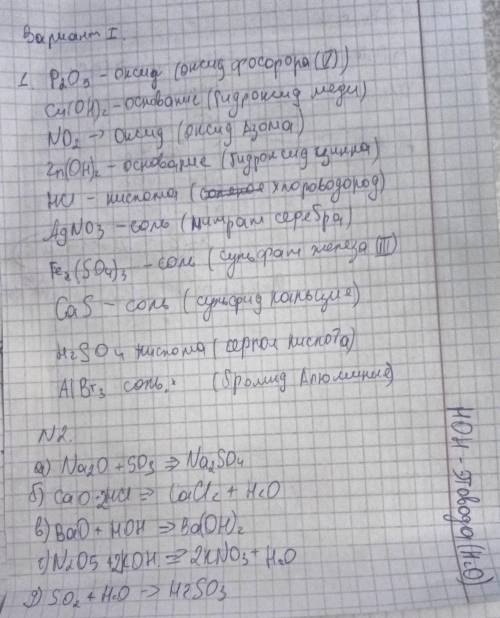 Вариант I.
1. P2O5 – оксид (оксид фосфора (V))
Cu(OH)2 – основание (гидроксид меди)
NO2 → оксид (оксид азота)
Zn(OH)2 – основание (гидроксид цинка)
HCl – кислота (хлороводород)
AgNO3 – соль (нитрат серебра)
Fe2(SO4)3 – соль (сульфат железа III)
CaS – соль (сульфид кальция)
H2SO4 кислота (серная кислота)
AlBr3 соль. (бромид Алюминия)
N2.
а) Na2O + SO3 ⇒ Na2SO4
б) CaO + 2HCl ⇒ CaCl2 + H2O
в) BaO + HOH ⇒ Ba(OH)2
г) N2O5 + 2KOH ⇒ 2KNO3 + H2O
д) SO2 + H2O –> H2SO3
HOH – это вода (H2O)